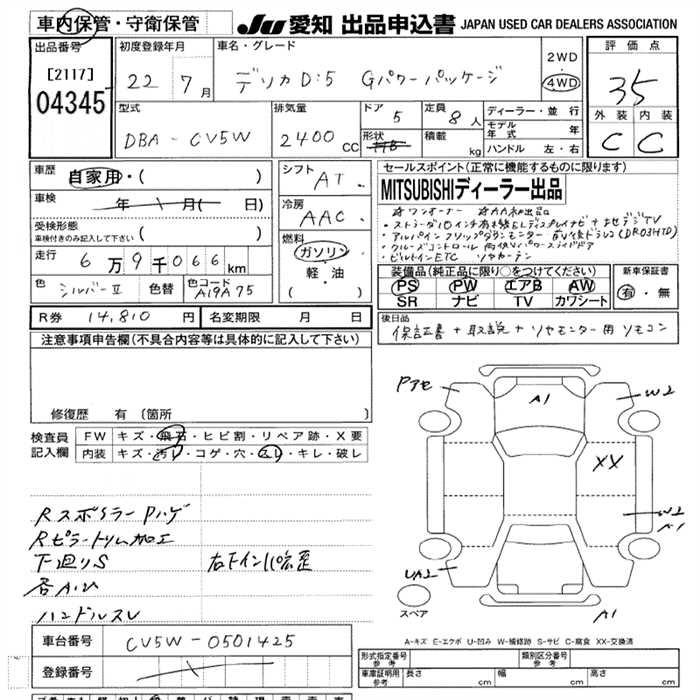 車内保管・守衛保管
JU 愛知 出品申込書 JAPAN USED CAR DEALERS ASSOCIATION
出品番号
[2117]
04345
初度登録年月
22年 7月
車名・グレード
デリカD:5 Gパワーパッケージ
2WD
4WD
評価点
3.5
外装 内装
C C
型式
DBA-CV5W
排気量
2400cc
ドア
5
形状
定員
8人
積載
kg
ディーラー・並行
モデル年式 年
ハンドル 左・右
車歴
自家用・( )
車検
年 月( 日)
受検形態
車検付きのみ記入して下さい ( )
走行
6万9千066km
色
シルバーII
色替
色コード
A19A75
シフト
AT
冷房
AAC
燃料
ガソリン
・
軽・油
( )
R券 14,810円
名変期限 月 日
セールスポイント(正常に機能するものに限ります)
MITSUBISHIディーラー出品
・クルーズコントロール 両側パワースライドドア
・ビルトインETC リヤカーテン
装備品(純正品に限り○をつけてください)
PS PW エアB AW
SR ナビ TV カワシート
新車保証書
有・無
後日品
保証書+取説+リヤモニター用リモコン
注意事項申告欄(不具合内容等は具体的に記入して下さい)
修復歴 有 〔箇所 〕
検査員記入欄
FW キズ・飛石・ヒビ割・リペア跡・X要
内装 キズ・汚れ・コゲ・穴・スレ・キレ・破レ
Rスポイラー Pハゲ
Rピラートリム加工
下廻りS
各AU
ハンドルスレ
Pアセ
A1
W2
XX
W2
A1
UA2
A1
スペア
A-キズ E-エクボ U-凹み W-補修跡 S-サビ C-腐食 XX-交換済
車台番号
CV5W-0501425
登録番号
形式指定番号 参考
類別区分番号 参考
車庫証明用 参考
長さ cm
幅 cm
高さ cm